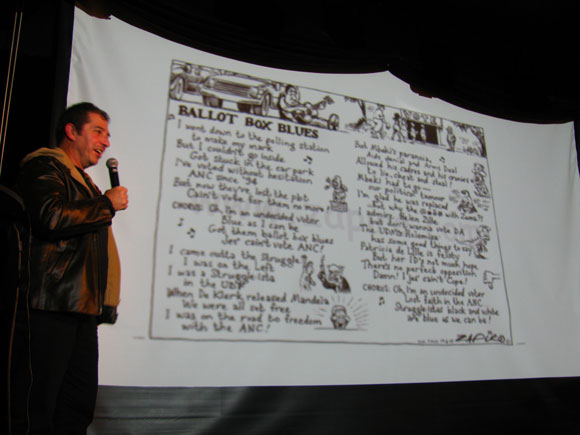 BALLOT BOX BLUES
I went down to the polling station
To make my mark
But I couldn't go inside
Got stuck in the car park
I've voted without hesitation
ANC since '94
But now they've lost the plot
Cain't vote for them no more
CHORUS: Oh, I'm an undecided voter
Blue as I can be
Got them ballot box blues
Jes' cain't vote ANC!
I came outta the Struggle
I was on the Left
I was a Struggle-ista
in the UDF
When De Klerk released Mandela
We were all set free
I was on the road to freedom
with the ANC!
But Mbeki's paranoia,
Aids denial and Arms Deal
Allowed his cadres and his cronies
to lie, cheat and steal!
Mbeki had to go —
our political tumour
I'm glad he was replaced
But why the with Zuma??
I admire Helen Zille
but don't wanna vote DA
The UDM's Holomisa
has some good things to say
Patricia de Lille is feisty
But her ID's not much hope
There's no perfect opposition
Damn! I jes' cain't Cope!
CHORUS: Oh, I'm an undecided voter
Lost faith in the ANC
Struggle-istas black and white
are blue as we can be!
ZAPIRO